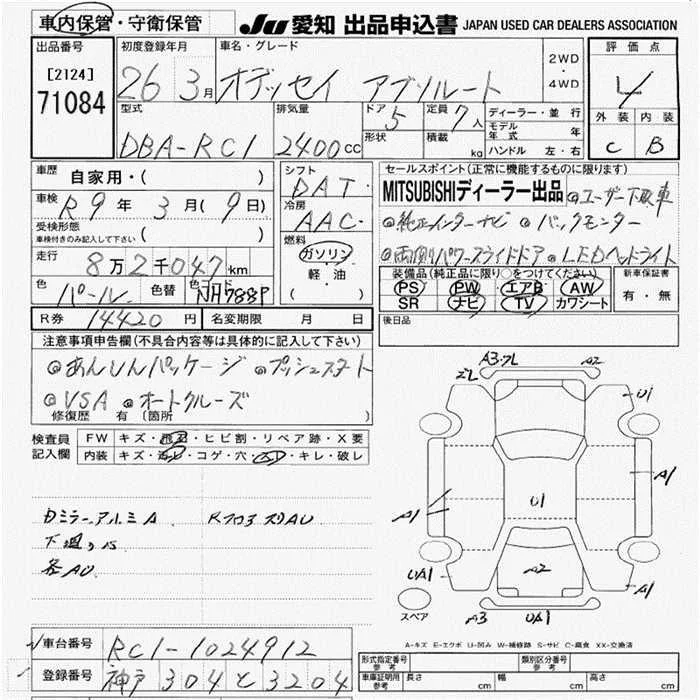 車内保管・守衛保管
JU 愛知 出品申込書 JAPAN USED CAR DEALERS ASSOCIATION
出品番号
[2124]
71084
初度登録年月
26 3月
車名・グレード
オデッセイ アブソルート
2WD
・
4WD
評価点
4
外装 内装
C B
型式
DBA-RC1
排気量
2400cc
ドア
5
形状
定員
7人
積載 kg
ディーラー・並行
モデル年式 年
ハンドル 左・右
車歴 自家用・( )
車検 R9年 3月(9日)
受検形態
車検付きのみ記入して下さい ( )
走行 8万2千047km
色 パール 色替 色コード NH788P
シフト
DAT
冷房
AAC
燃料
ガソリン
軽・油
( )
セールスポイント(正常に機能するものに限ります)
MITSUBISHIディーラー出品 ◎ユーザー下取車
◎純正インターナビ ◎バックモニター
◎両側パワースライドドア ◎LEDヘッドライト
装備品(純正品に限り○をつけてください)
PS PW エアB AW
SR ナビ TV カワシート
新車保証書
有・無
R券 14420円 名変期限 月 日
後日品
注意事項申告欄(不具合内容等は具体的に記入して下さい)
◎あんしんパッケージ ◎プッシュスタート
◎VSA ◎オートクルーズ
修復歴 有〔箇所 〕
検査員記入欄
FW キズ・飛石・ヒビ割・リペア跡・X要
内装 キズ・汚レ・コゲ・穴・スレ・キレ・破レ
カミラーアルミA
下廻りS
各AU
A3.7L A2
U1
A1
A1
U1
A2
UA1
A1
A3 UA1
スペア
A-キズ E-エクボ U-凹み W-補修跡 S-サビ C-腐食 XX-交換済
車台番号 RC1-1024912
登録番号 神戸 304 と 3204
形式指定番号 参考
類別区分番号 参考
車庫証明用 参考 長さ cm 幅 cm 高さ cm